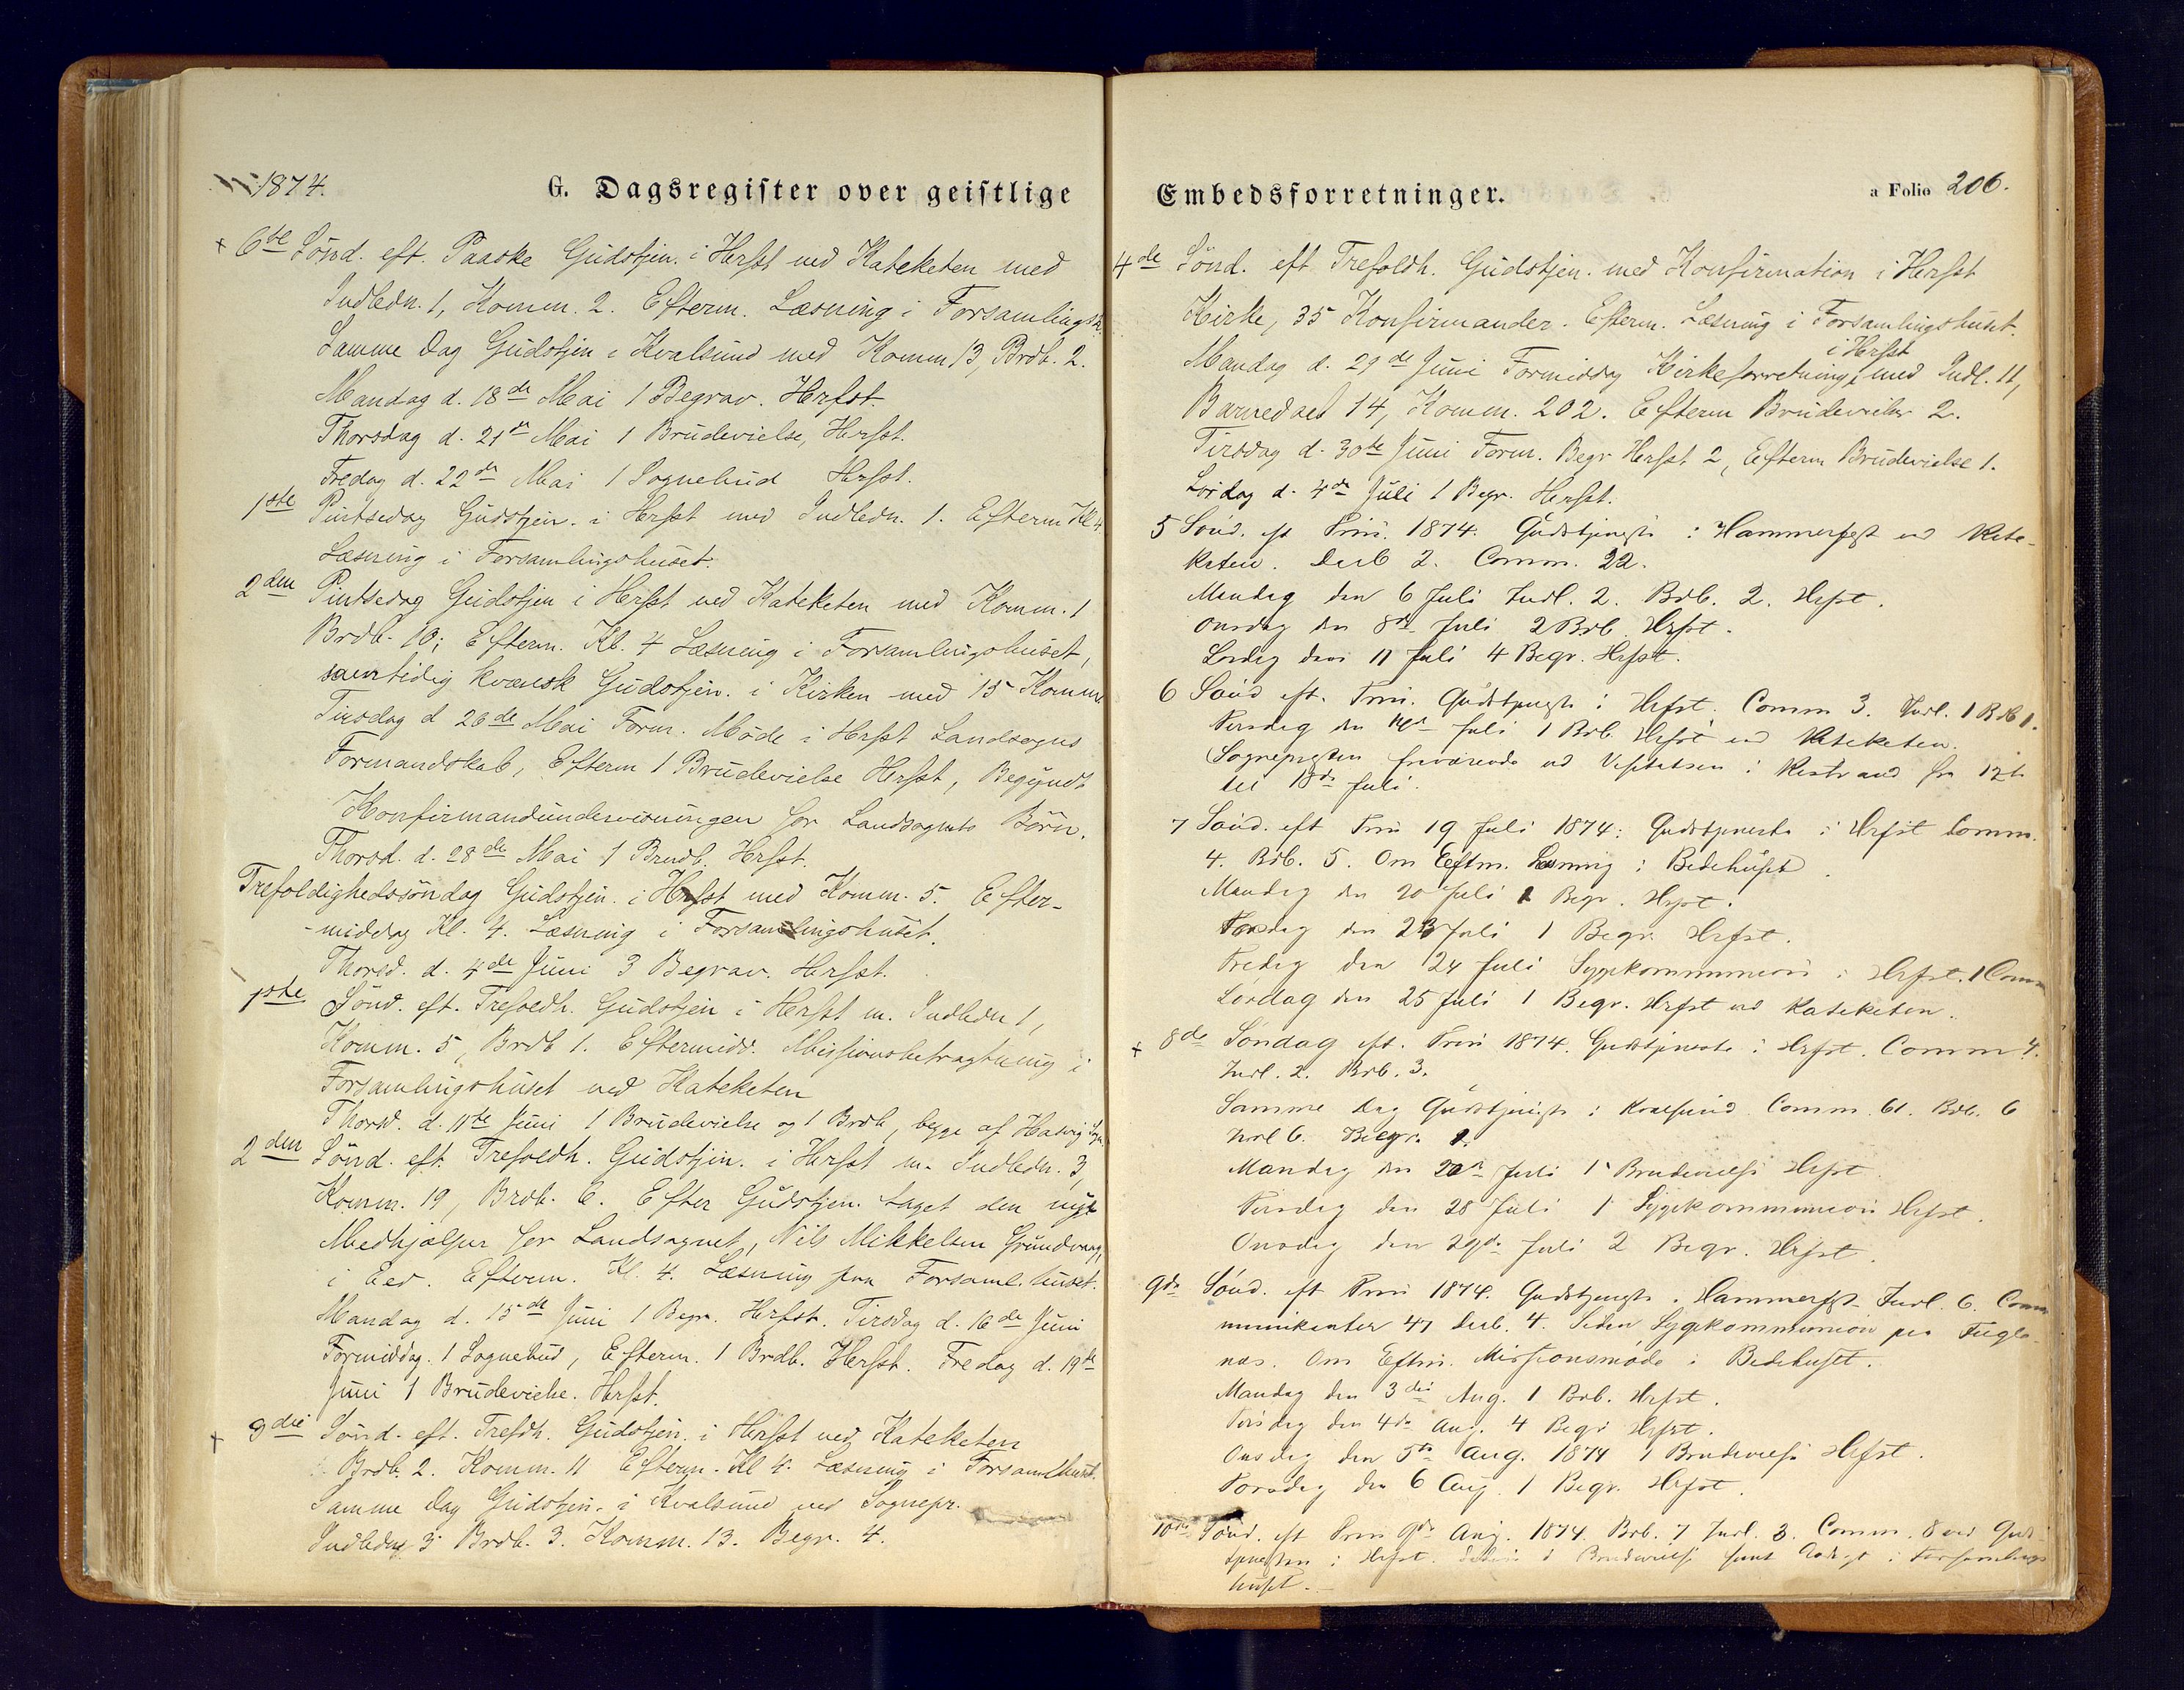 1874.
G. Dagsregister over geistlige
+ 6te Sønd. eft. Paaske Gudstjen. i Hrfst ved Kateketen med
Indledn. 1, Komm. 2. Efterm. Læsning i Forsamlingsh.
Samme Dag Gudstjen i Kvalsund med Komm 13, Brdb. 2.
Mandag d. 18de Mai 1 Begrav. Hrfst.
Thorsdag d. 21de Mai 1 Brudevielse, Hrfst.
Fredag d. 22de Mai 1 Sognebud Hrfst.
1ste Pintsedag Gudstjen. i Hrfst med Indledn. 1. Efterm Kl 4
Læsning i Forsamlingshuset.
2den Pintsedag Gudstjen i Hrfst ved Kateketen med Komm. 1
Brdb. 10; Efterm. Kl. 4 Læsning i Forsamlingshuset,
samtidig kvænsk Gudstjen. i Kirken med 15 Komm.
Tirsdag d 26de Mai Form. Møde i Hrfst Landsogns
Formandskab, Efterm 1 Brudevielse Hrfst, Begyndt
Konfirmandundervisningen for Landsognets Børn.
Thorsd. d. 28de Mai 1 Brudb. Hrfst.
Trefoldighedssøndag Gudstjen. i Hrfst med Komm. 5. Efter-
-middag Kl. 4. Læsning i Forsamlingshuset.
Thorsd. d. 4de Juni 3 Begrav. Hrfst.
1ste Sønd. eft. Trefoldh. Gudstjen i Hrfst m. Indledn 1,
Komm. 5, Brdb 1. Eftermidd. Missionsbetragtning i
Forsamlingshuset ved Kateketen
Thorsd. d. 11te Juni 1 Brudevielse og 1 Brdb, begge af Hasvig Sogn.
2den Sønd. eft. Trefoldh. Gudstjen. i Hrfst m. Indledn. 3,
Komm. 19, Brdb. 6. Efter Gudstjen. taget den nye
Medhjælper for Landsognet, Nils Mikkelsen Grundvaag,
i Eed. Efterm. Kl. 4. Læsning paa Forsaml.huset.
Mandag d. 15de Juni 1 Begr. Hrfst. Tirsdag d. 16de Juni
Formiddag. 1 Sognebud, Efterm. 1 Brdb. Hrfst. Fredag d. 19de
Juni 1 Brudevielse. Hrfst.
+ 3die Sønd. eft. Trefdh. Gudstjen. i Hrfst ved Kateketen
Brdb. 2. Komm. 11 Efterm. Kl 4. Læsning i Forsamlhuset.
Samme Dag Gudstjen. i Kvalsund ved Sognepr.
Indledn 3 Brdb. 3. Komm. 13. Begr. 4.
Embedsforretninger.
a Folio 206.
4de Sønd. eft Trefoldh. Gudstjen. med Konfirmation i Hrfst
Kirke, 35 Konfirmander. Efterm. Læsning i Forsamlingshuset.
i Hrfst
Mandag d. 29de Juni Formiddag Kirkeforretning, med Indl. 11,
Barnedaab 14, Komm. 202. Efterm Brudevielser 2.
Tirsdag d. 30te Juni Form. Begr Hrfst 2, Efterm Brudevielse 1.
Lørdag d. 4de Juli 1 Begr. Hrfst.
5 Sønd. eft Trin. 1874. Gudstjeneste i Hammerfest ved Kate-
keten. Daab 2. Comm. 22.
Mandag den 6 Juli Indl. 2. Brdb. 2. Hrfst.
Onsdag den 8de Juli 2 Brdb. Hrfst.
Lørdag den 11 Juli 4 Begr. Hrfst.
6 Sønd eft. Trin. Gudstjeneste i Hrfst. Comm 3. Indl. 1 Brdb 1.
Tirsdag den 14de Juli 1 Brdb. Hrfst ved Kateketen.
Sognepresten fraværende ved Visitatsen i Kistrand fra 12te
til 18de Juli.
7 Sønd. eft Trin 19 Juli 1874: Gudstjeneste i Hrfst Comm.
4. Brdb. 5. Om Eftm. Læsning i Bedehuset.
Mandag den 20 Juli 1 Begr. Hrfst.
Torsdag den 23 Juli 1 Begr. Hrfst.
Fredag den 24 Juli Sygekommunion i Hrfst. 1 Comm
Lørdag den 25 Juli 1 Begr. Hrfst ved Kateketen.
+ 8de Søndag eft. Trin 1874. Gudstjeneste i Hrfst. Comm 4.
Indl. 2. Brdb. 3.
Samme Dag Gudstjeneste i Kvalsund Comm. 61. Brdb. 6
Indl 6. Begr. 1.
Mandag den Juli 1 Brudevielse Hrfst
Tirsdag den 28 Juli 1 Sygekommunion Hrfst.
Onsdag den 29de Juli 2 Begr. Hrfst.
9de Sønd. eft Trin 1874. Gudstjeneste i Hammerfest Indl. 6. Com
munikanter 47 Daab. 4. Siden Sygekommunion paa Fugle-
næs. Om Eftm. Missionsmøde i Bedehuset.
Mandag den 3die Aug. 1 Brdb. Hrfst.
Tirsdag den 4de Aug. 4 Begr Hrfst.
Onsdag den 5te Aug. 1874 1 Brudevielse Hrfst.
Torsdag den 6 Aug. 1 Begr. Hrfst.
10de Sønd. eft Trin 9de Aug. 1874. Brdb. 7 Indl. 3. Comm. 8 ved Gud
tjenesten i Hrfst. Brudevielse samt i Forsamlings
huset.